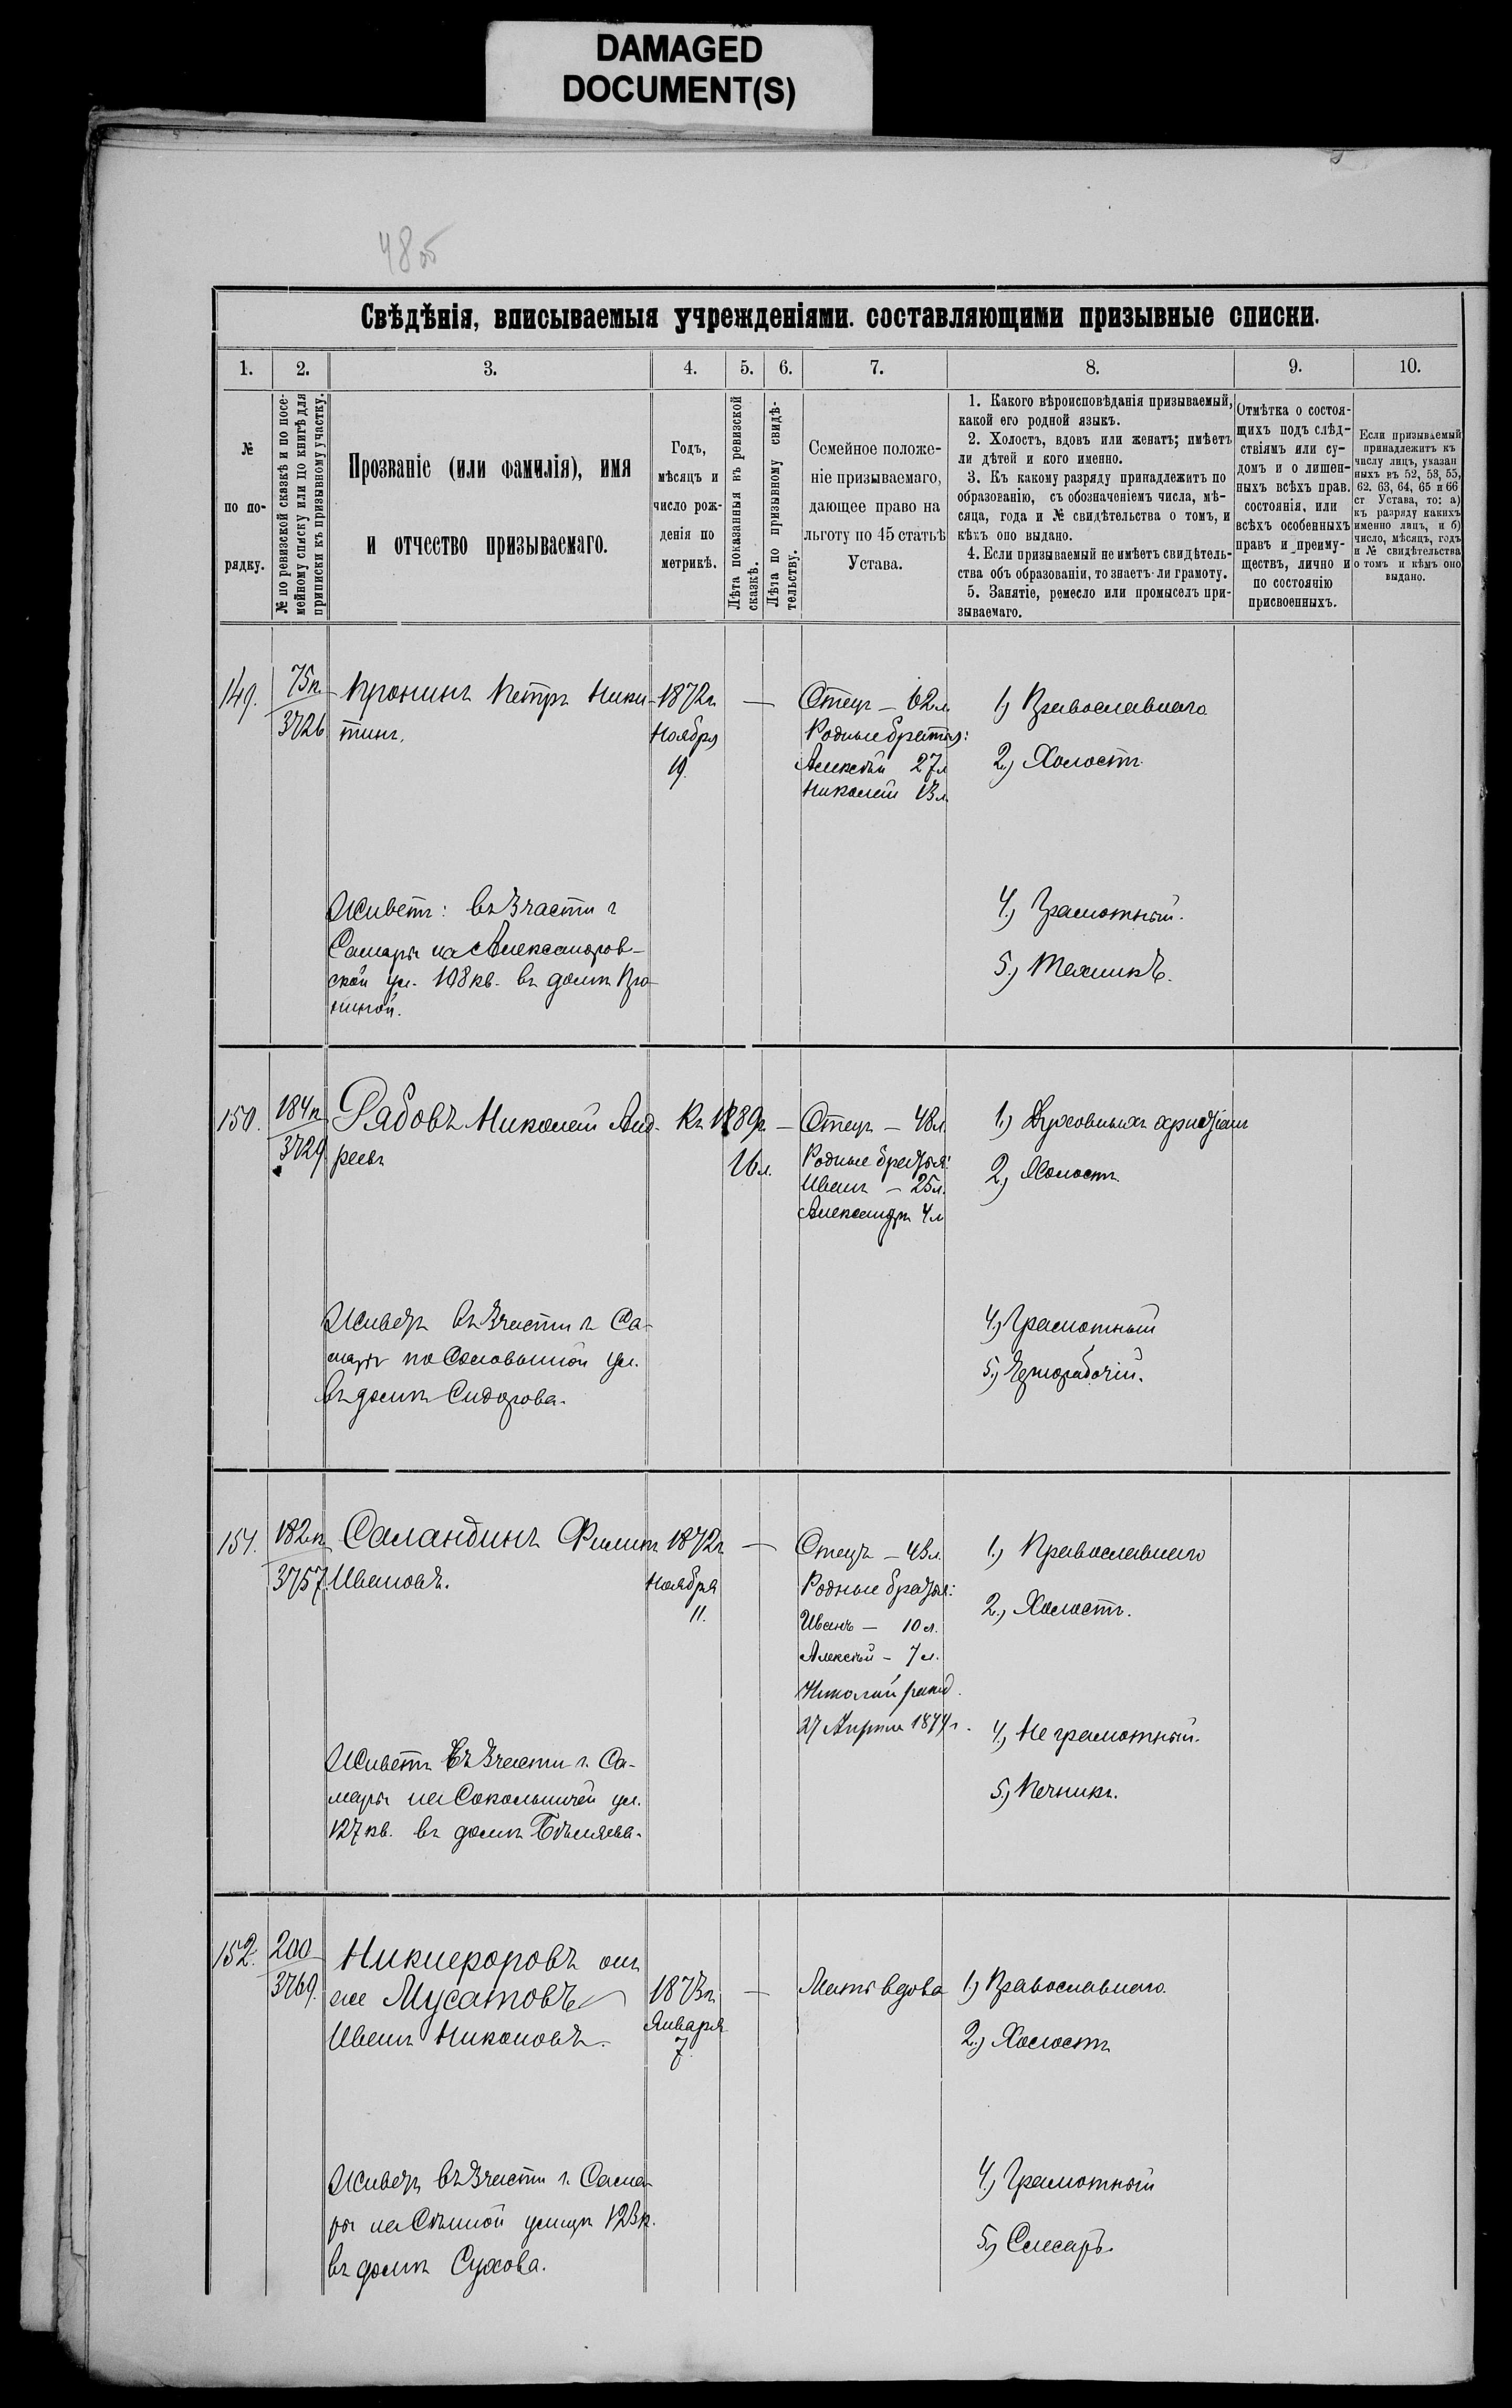 DAMAGED
DOCUMENT(S)
48 об
Свѣдѣнія, вписываемыя учрежденіями. составляющими призывные списки.
1. 2. 3. 4. 5. 6. 7. 8. 9. 10.
№
по по-
рядку.
№ по ревизской сказкѣ и по посе-
мейному списку или по книгѣ для
приписки къ призывному участку.
Прозваніе (или фамилія), имя
и отчество призываемаго.
Годъ,
мѣсяцъ и
число рож-
денія по
метрикѣ.
Лѣта показанныя въ ревизской
сказкѣ.
Лѣта по призывному свидѣ-
тельству.
Семейное положе-
ніе призываемаго,
дающее право на
льготу по 45 статьѣ
Устава.
1. Какого вѣроисповѣданія призываемый,
какой его родной языкъ.
2. Холостъ, вдовъ или женатъ; имѣетъ
ли дѣтей и кого именно.
3. Къ какому разряду принадлежитъ по
образованію, съ обозначеніемъ числа, мѣ-
сяца, года и № свидѣтельства о томъ, и
кѣмъ оно выдано.
4. Если призываемый не имѣетъ свидѣтель-
ства объ образованіи, то знаетъ-ли грамоту.
5. Занятіе, ремесло или промыселъ при-
зываемаго.
Отмѣтка о состоя-
щихъ подъ слѣд-
ствіямъ или су-
домъ и о лишен-
ныхъ всѣхъ прав.
состоянія, или
всѣхъ особенныхъ
правъ и преиму-
ществъ, лично и
по состоянію
присвоенныхъ.
Если призываемый
принадлежитъ къ
числу лицъ, указан
ныхъ въ 52, 53, 55,
62. 63, 64, 65 и 66
ст Устава, то: а)
къ разряду какихъ
именно лицъ, и б)
число, мѣсяцъ, годъ
и № свидѣтельства
о томъ и кѣмъ оно
выдано.
149. 75п. Пронинъ Петръ Ники- 1872г. — Отецъ — 62л. 1) Православнаго
3726 тинъ. Ноября Родные братья:
19. Алексѣй 27л. 2.) Холостъ
Николай 13л.
Живетъ: въ 3 части г. 4.) Грамотный.
Самары на Александров-
ской ул. 108 кв. въ домѣ Про- 5.) Техникъ.
ниной.
150. 184п. Рабовъ Николай Анд- Къ 1889г. — Отецъ — 48л. 1.) Духовныхъ христіанъ
3729 реевъ 16л. Родные братья:
Иванъ — 25л. 2.) Холостъ
Александръ 4л
Живетъ въ 3 части г. Са- 4.) Грамотный
мары по Соловьиной ул.
въ домѣ Сидорова. 5.) Чернорабочій.
151. 182п. Саландинъ Филипъ 1872г. — Отецъ — 43л. 1.) Православнаго
3757. Ивановъ. Ноября Родные братья:
11. Иванъ — 10 л. 2.) Холостъ.
Алексѣй — 7 л.
Николай
27 Апрѣля г. 4.) Не грамотный.
Живетъ въ 3 части г. Са-
мары на Сокольничей ул. 5.) Печникъ.
127 кв. въ домѣ Бѣляева.
152. 200 Никифоровъ онъ
3769. же Мусатовъ 1873г. — Мать вдова 1.) Православнаго
Иванъ Никоновъ. Января
7. 2.) Холостъ
Живетъ въ 3 части г. Сама- 4.) Грамотный
ры на Сѣнной улицѣ 123 к.
въ домѣ Сухова. 5.) Слесарь.